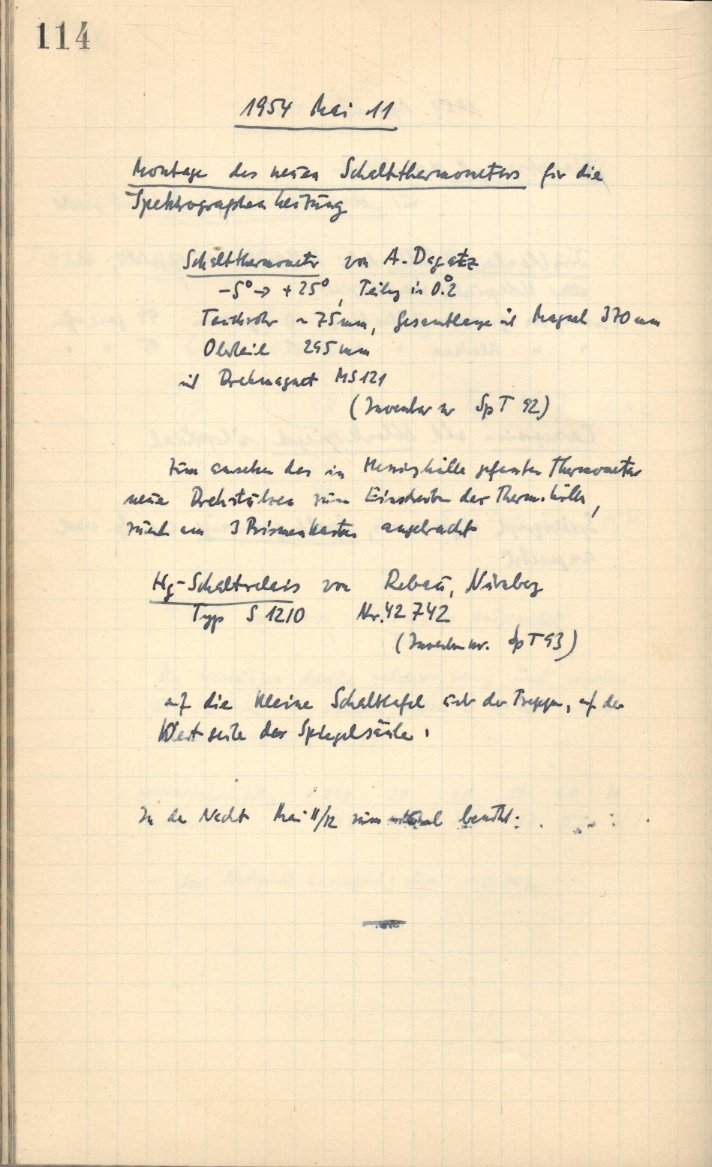 114
1954 Mai 11
Montage des neuen Schaltthermometers für die
Spektrographenheizung
Schaltthermometer von A. Degatz
-5° → +25°, Teilung in 0.°2
Tauchrohr ~ 75 mm, Gesamtlänge mit Magnet 370 mm
Oberteil 295 mm
mit Drehmagnet MS 121
(Inventar nr SpT 92)
Zum ansehen des in Messinghülle gefassten Thermometer
neue Drehstützen zum Einschieben der Thermohülle,
am 3 Prismenkasten angebracht
Hg-Schaltrelais von Rebau, Nürnberg
Typ S 1210 Nr. 42742
(Inventarnr. SpT 93)
auf die kleine Schalttafel unter der Treppe, auf der
Westseite der Spiegelsäule.
In der Nacht Mai 11/12 zum benützt.